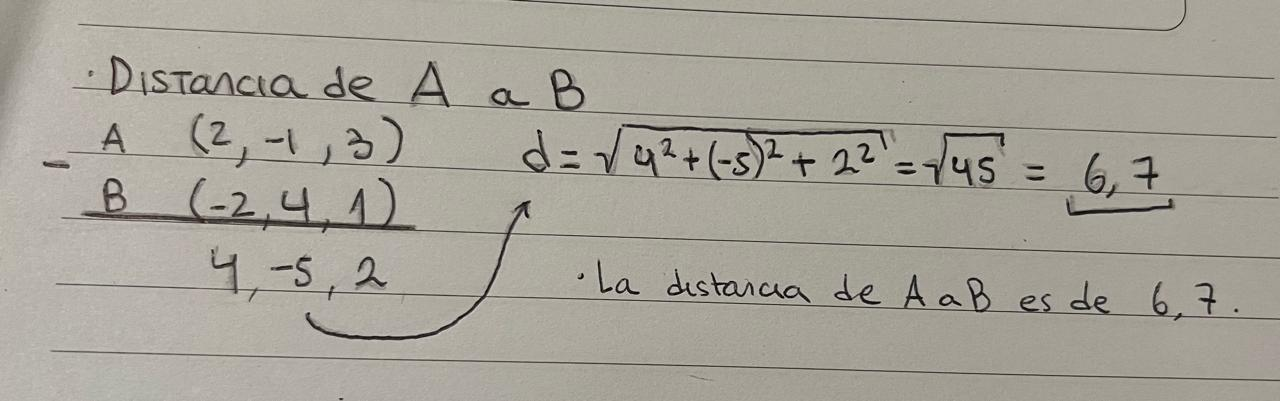 · Distancia de A a B
A (2, -1, 3)
- B (-2, 4, 1)
4, -5, 2
d = √4² + (-5)² + 2² = √45 = 6,7
· La distancia de A a B es de 6,7.